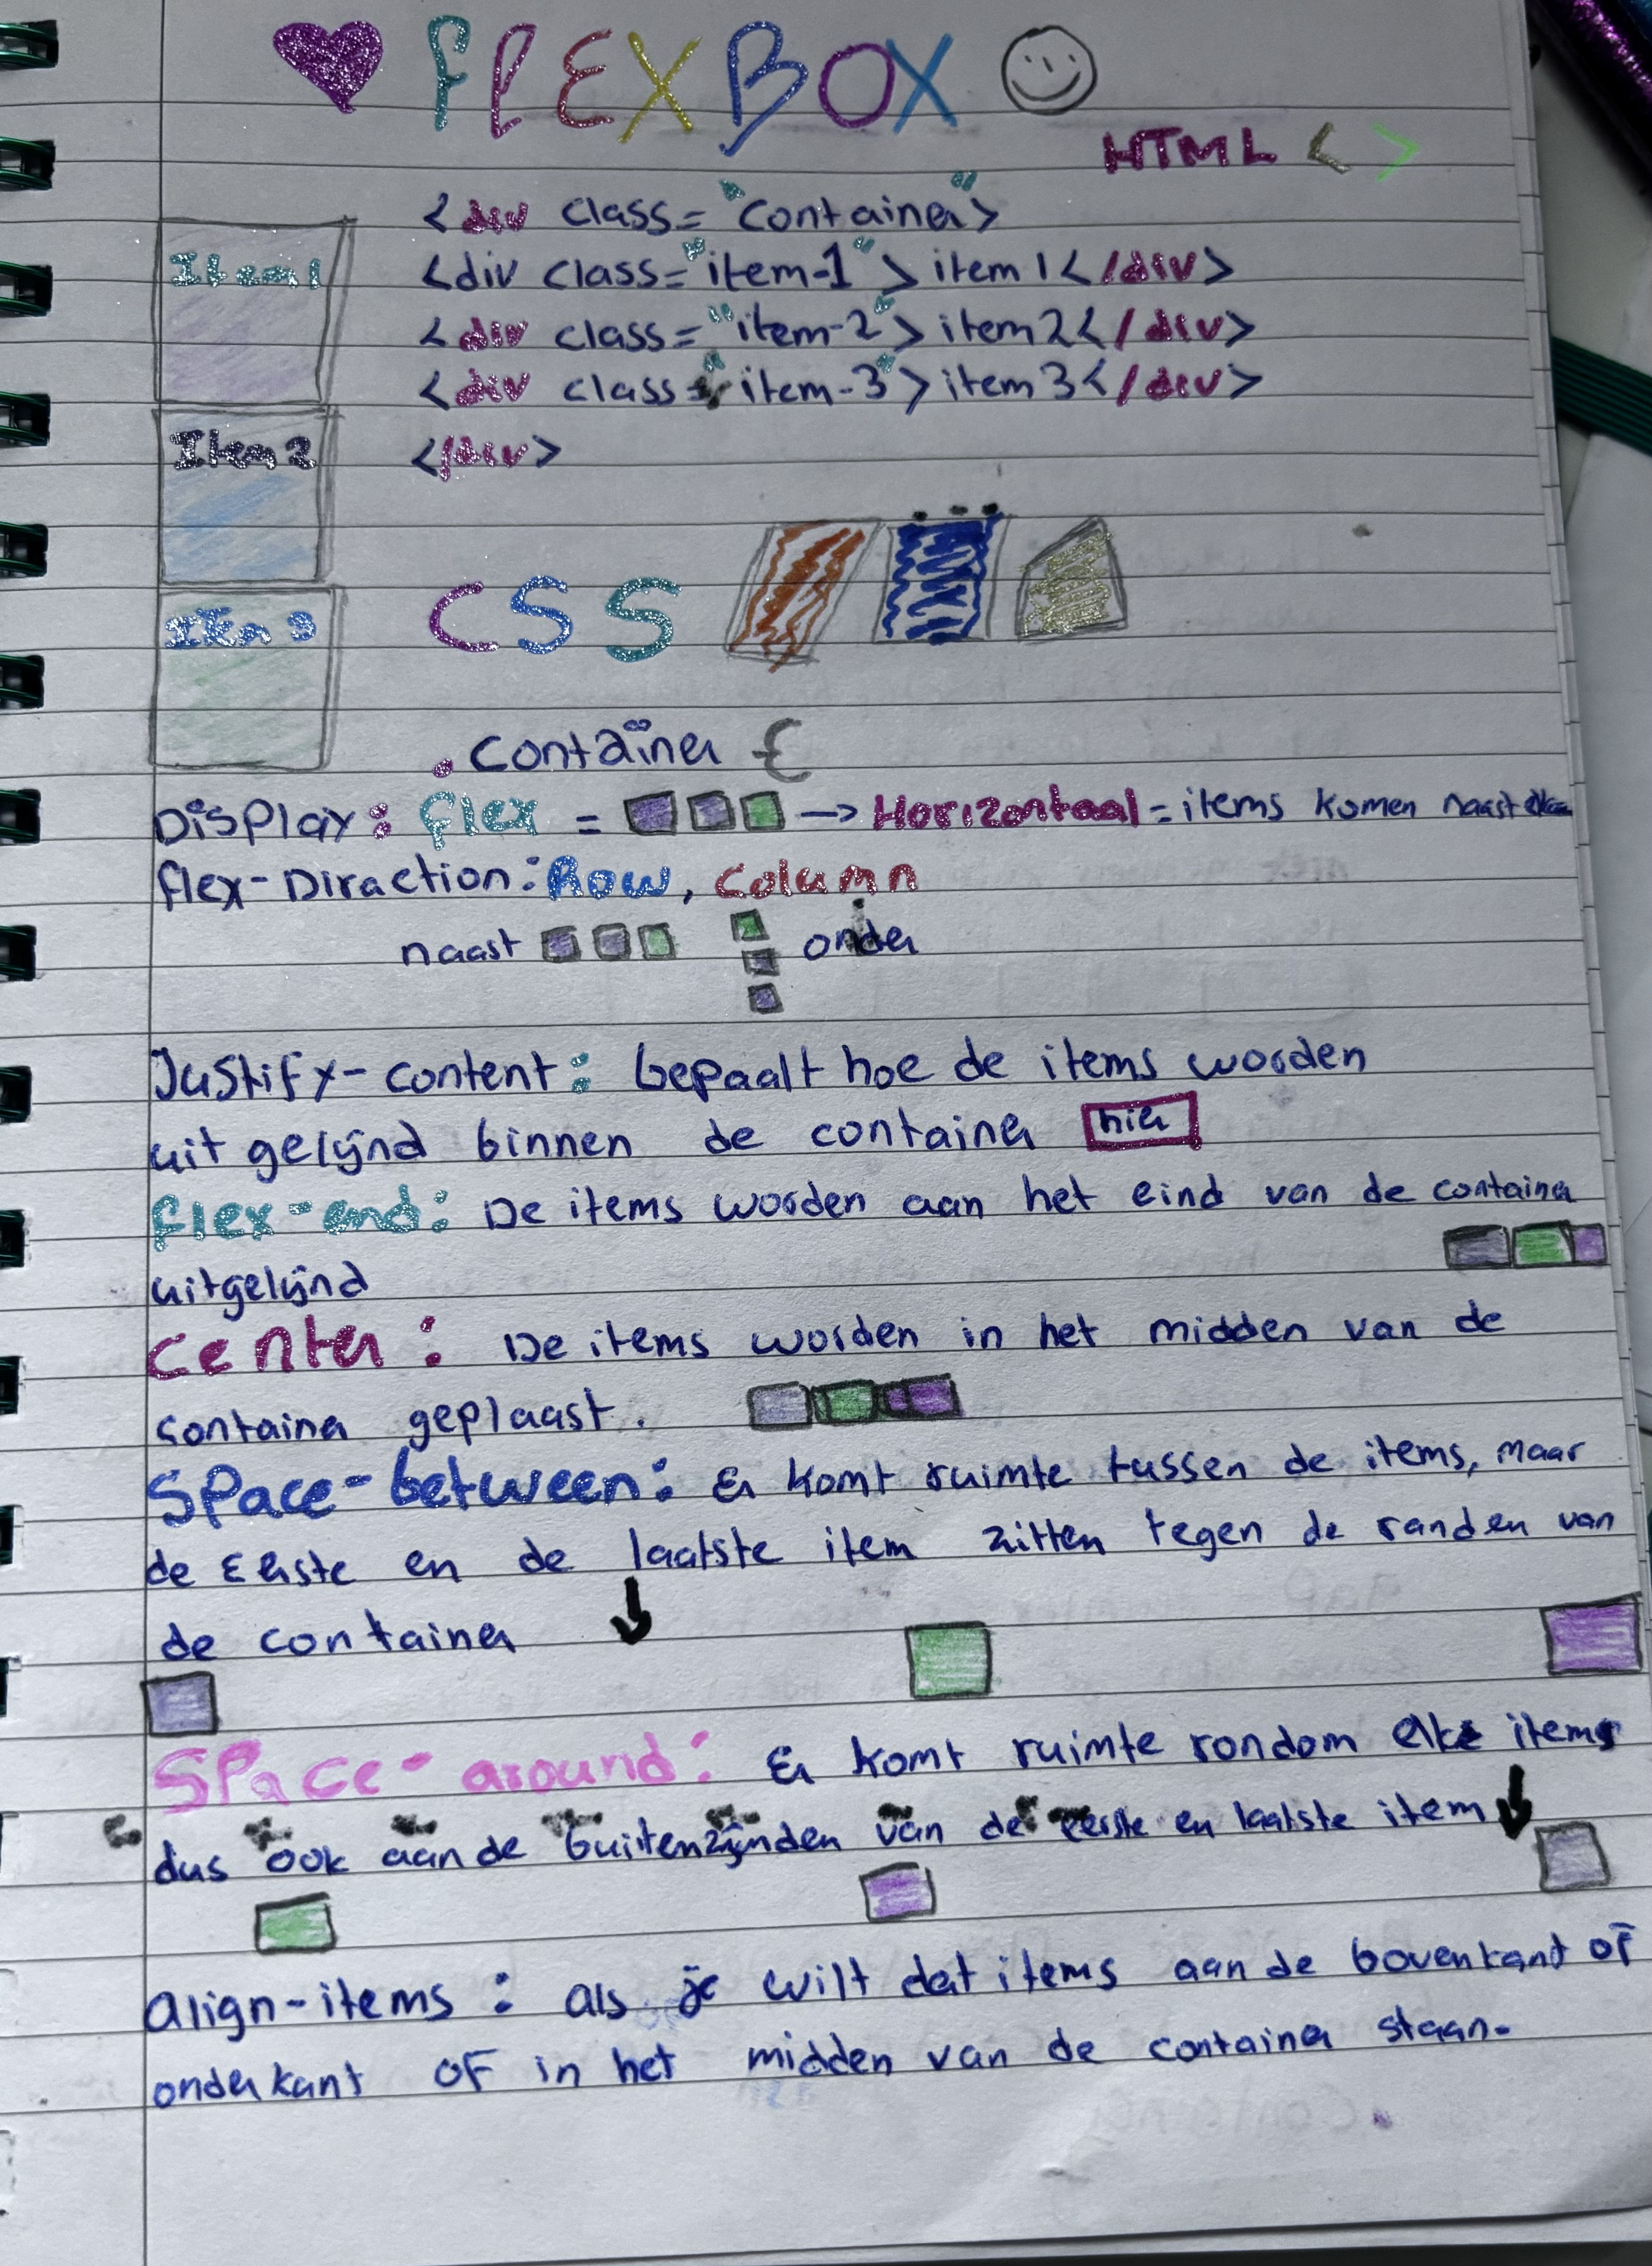 FLEXBOX
HTML < >
<div class="container">
<div class="item-1"> item 1</div>
<div class="item-2"> item 2</div>
<div class="item-3"> item 3</div>
</div>
Item 1
Item 2
Item 3
CSS
.container {
Display: flex = → Horizontaal = items komen naast elkaar
flex-Diraction: Row, Column
naast onder
Justify-content: bepaalt hoe de items worden
uit gelijnd binnen de container hier
flex-end: De items worden aan het eind van de container
uitgelijnd
center: De items worden in het midden van de
container geplaast.
Space-between: Er komt ruimte tussen de items, maar
de Eerste en de laatste item zitten tegen de randen van
de container ↓
Space-around: Er komt ruimte rondom elke items
dus ook aan de buitenzijnden van de eerste en laatste item ↓
align-items: als je wilt dat items aan de bovenkant of
onderkant OF in het midden van de container staan.